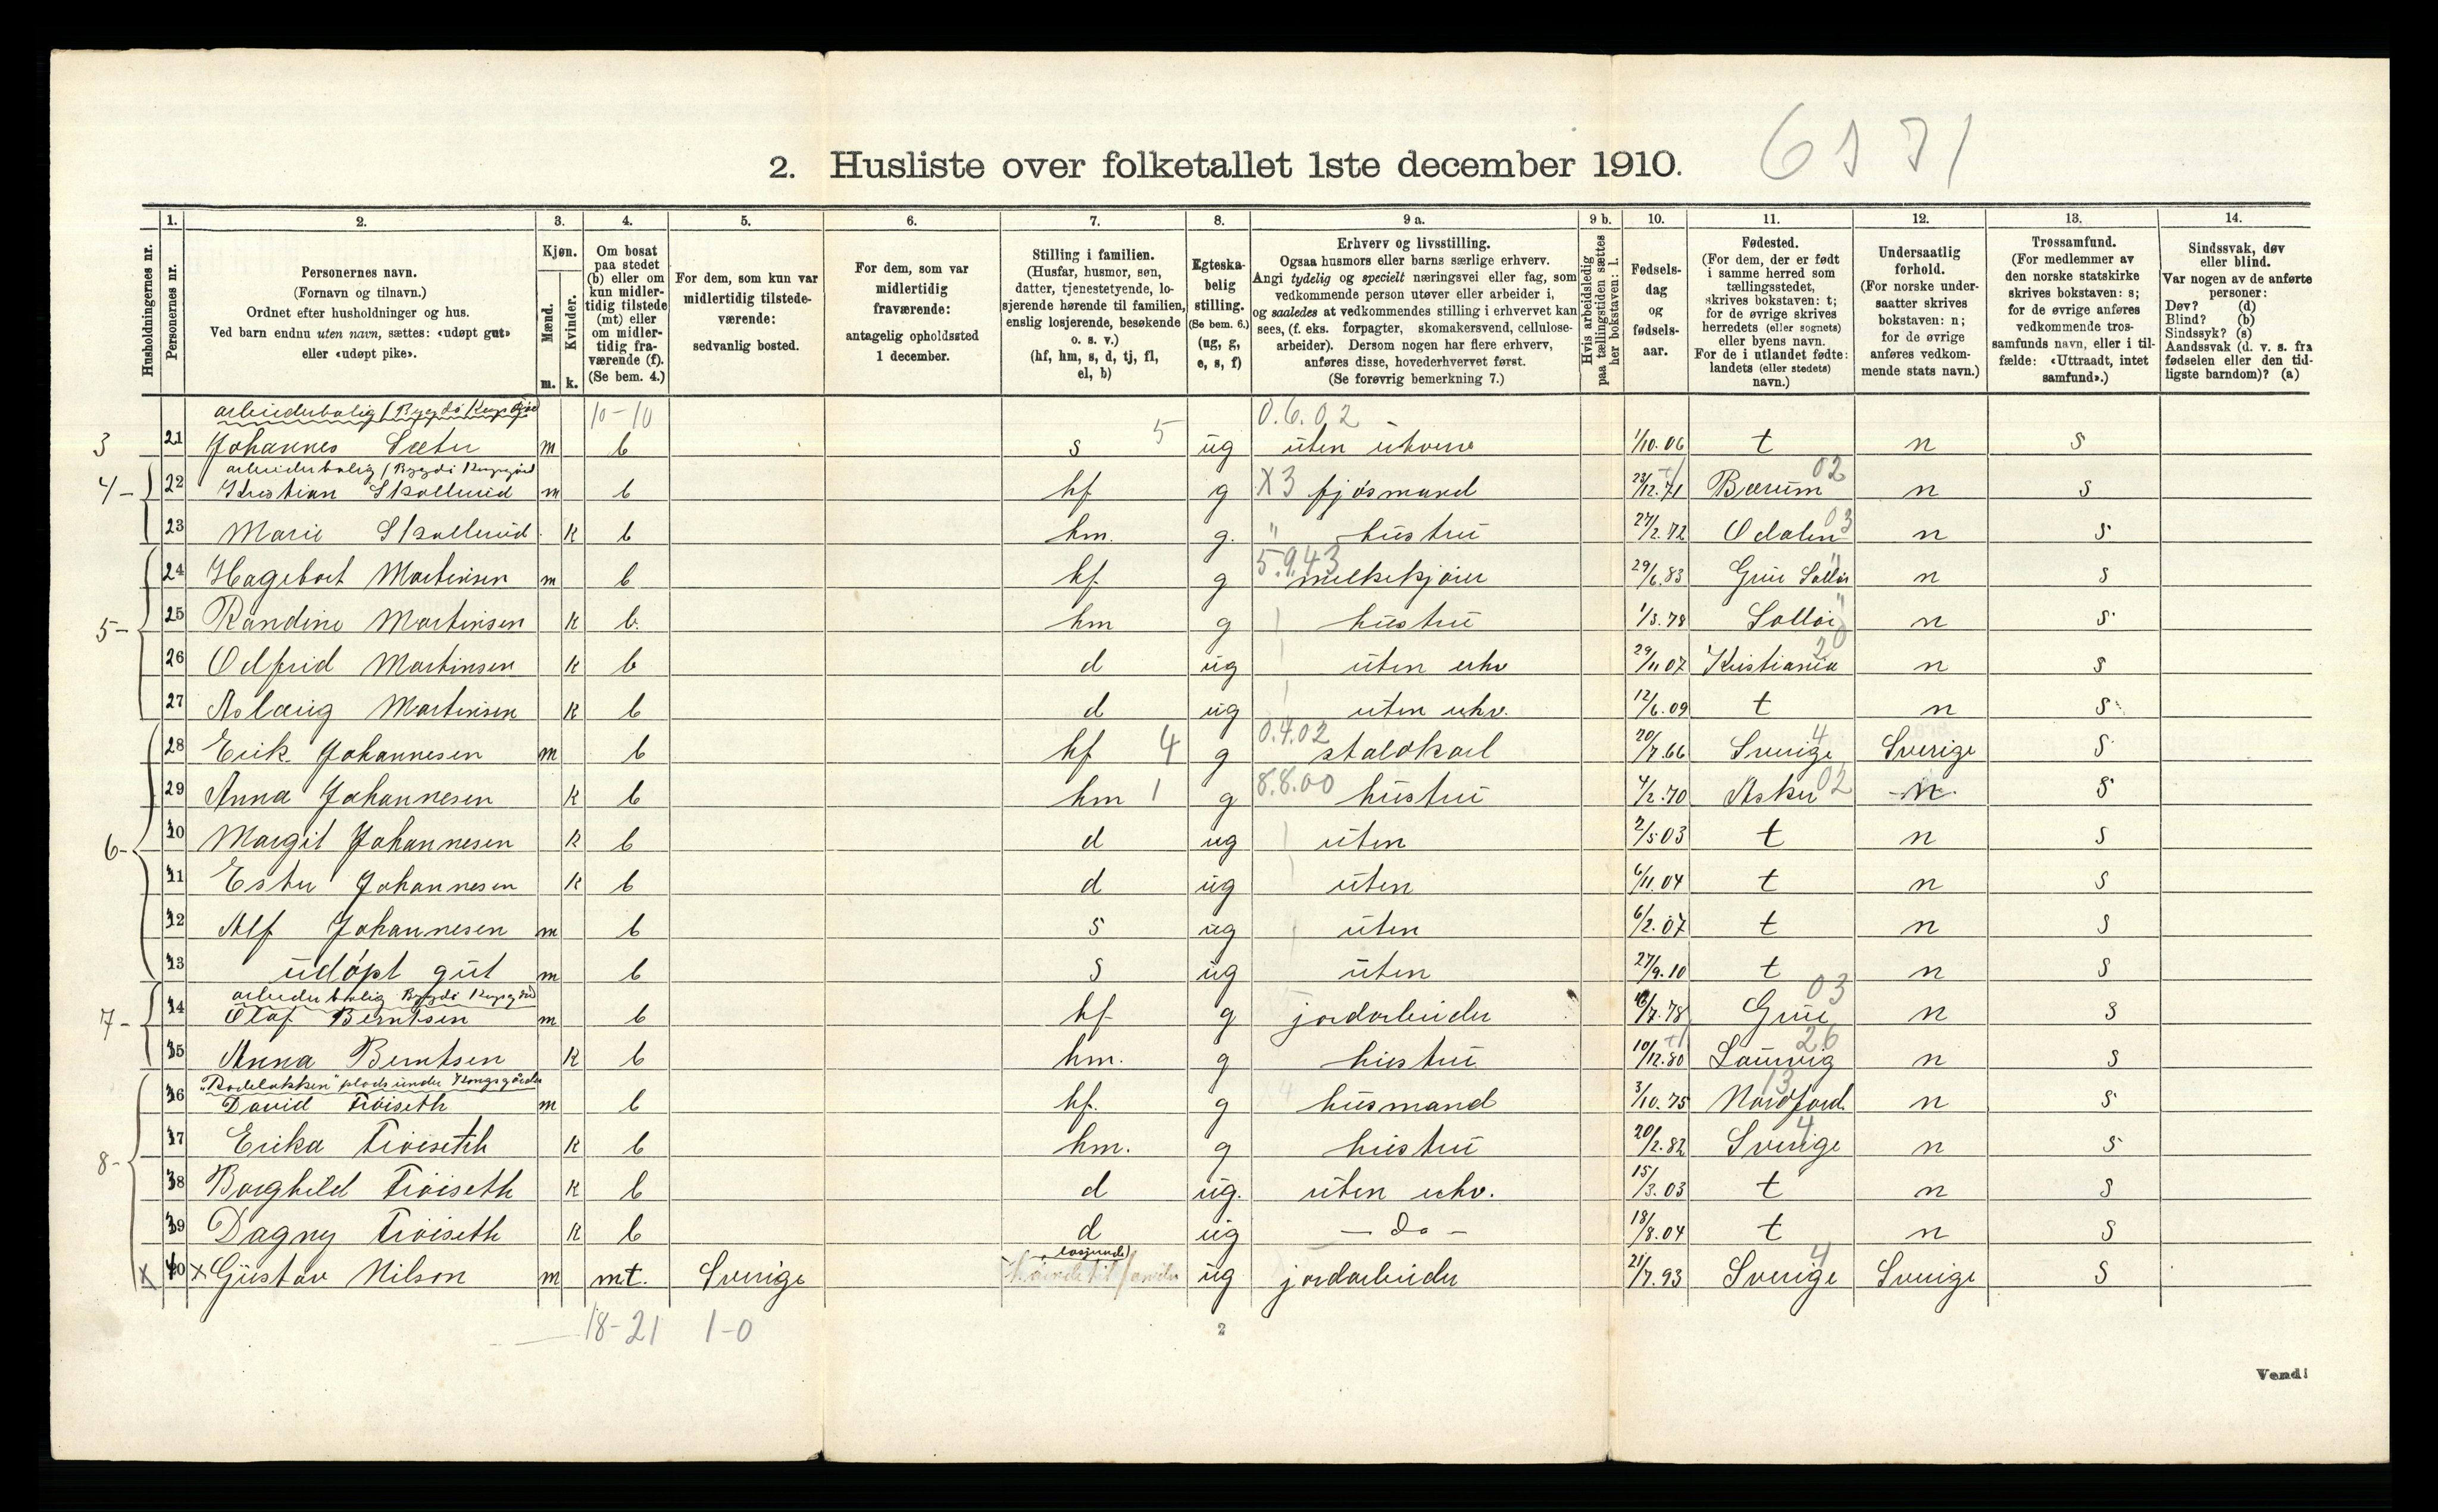 6571
2. Husliste over folketallet 1ste december 1910.
1. 2. 3. 4. 5. 6. 7. 8. 9 a. 9 b. 10. 11. 12. 13. 14.
Husholdningernes nr.
Personernes nr.
Personernes navn.
(Fornavn og tilnavn.)
Ordnet efter husholdninger og hus.
Ved barn endnu uten navn, sættes: «udøpt gut»
eller «udøpt pike».
Kjøn.
Mænd.
Kvinder.
m. k.
Om bosat
paa stedet
(b) eller om
kun midler-
tidig tilstede
(mt) eller
om midler-
tidig fra-
værende (f).
(Se bem. 4.)
For dem, som kun var
midlertidig tilstede-
værende:
sedvanlig bosted.
For dem, som var
midlertidig
fraværende:
antagelig opholdssted
1 december.
Stilling i familien.
(Husfar, husmor, søn,
datter, tjenestetyende, lo-
sjerende hørende til familien,
enslig losjerende, besøkende
o. s. v.)
(hf, hm, s, d, tj, fl,
el, b)
Egteska-
belig
stilling.
(Se bem. 6.)
(ug, g,
e, s, f)
Erhverv og livsstilling.
Ogsaa husmors eller barns særlige erhverv.
Angi tydelig og specielt næringsvei eller fag, som
vedkommende person utøver eller arbeider i,
og saaledes at vedkommendes stilling i erhvervet kan
sees, (f. eks. forpagter, skomakersvend, cellulose-
arbeider). Dersom nogen har flere erhverv,
anføres disse, hovederhvervet først.
(Se forøvrig bemerkning 7.)
Hvis arbeidsledig
paa tællingstiden sættes
her bokstaven: l.
Fødsels-
dag
og
fødsels-
aar.
Fødested.
(For dem, der er født
i samme herred som
tællingsstedet,
skrives bokstaven: t;
for de øvrige skrives
herredets (eller sognets)
eller byens navn.
For de i utlandet fødte:
landets (eller stedets)
navn.)
Undersaatlig
forhold.
(For norske under-
saatter skrives
bokstaven: n;
for de øvrige
anføres vedkom-
mende stats navn.)
Trossamfund.
(For medlemmer av
den norske statskirke
skrives bokstaven: s;
for de øvrige anføres
vedkommende tros-
samfunds navn, eller i til-
fælde: «Uttraadt, intet
samfund».)
Sindssvak, døv
eller blind.
Var nogen av de anførte
personer:
Døv? (d)
Blind? (b)
Sindssyk? (s)
Aandssvak (d. v. s. fra
fødselen eller den tid-
ligste barndom)? (a)
arbeiderbolig (Bygdö Kongsgård 10-10 0.6.02
3 21 Johannes Sæter m b s 5 ug uten erhverv 1/10.06 t n s
arbeiderbolig (Bygdö Kongsgård 02
4- 22 Kristian Skollerud m b hf g X3 fjøsmand 23/12.71 Bærum n s
23 Marie Skollerud k b hm. g. " hustru 27/2.72 Odalen 03 n s
5.9.43
24 Hagebart Martinsen m b hf g melkekjører 29/6.83 Grue Solør " n s
5- 25 Randine Martinsen k b. hm g hustru 1/3.78 Solør " n s
26 Odfrid Martinsen k b d ug uten erhv 29/11 07 Kristiania 20 n s
27 Aslaug Martinsen k b d ug uten erhv. 12/6.09 t n s
0.4.02
28 Erik Johannesen m b hf 4 g staldkarl 20/7.66 Sverige 4 Sverige s
29 Anna Johannesen k b hm 1 g 8.8.00 hustru 4/2.70 Asker 02 n. s
6- 30 Margit Johannesen k b d ug uten 2/5 03 t n s
31 Ester Johannesen k b d ug uten 6/11.04 t n s
32 Alf Johannesen m b s ug uten 6/2.07 t n s
33 udöpt gut m b s ug uten 27/9.10 t n s
arbeiderbolig Bygdö Kongsgård 03
7- 34 Olaf Berntsen m b hf g jordarbeider /7.78 Grue n s
35 Anna Berntsen k b hm. g hustru 10/12.80 Laurvig 26 n s
"Rodeløkken" plads under Kongsgården 13
36 David Tröiseth m b hf. g husmand 3/10.75 Nordfjord n s
8- 37 Erika Tröiseth k b hm. g hustru 20/2.82 Sverige 4 n s
38 Borghild Tröiseth k b d ug. uten erhv. 15/3.03 t n s
39 Dagny Tröiseth k b d ug - do - 18/8.04 t n s
losjerende)
x 40 x Gustav Nilson m mt. Sverige ug jordarbeider 21/7.93 Sverige 4 Sverige s
18-21 1-0
2
Vend!